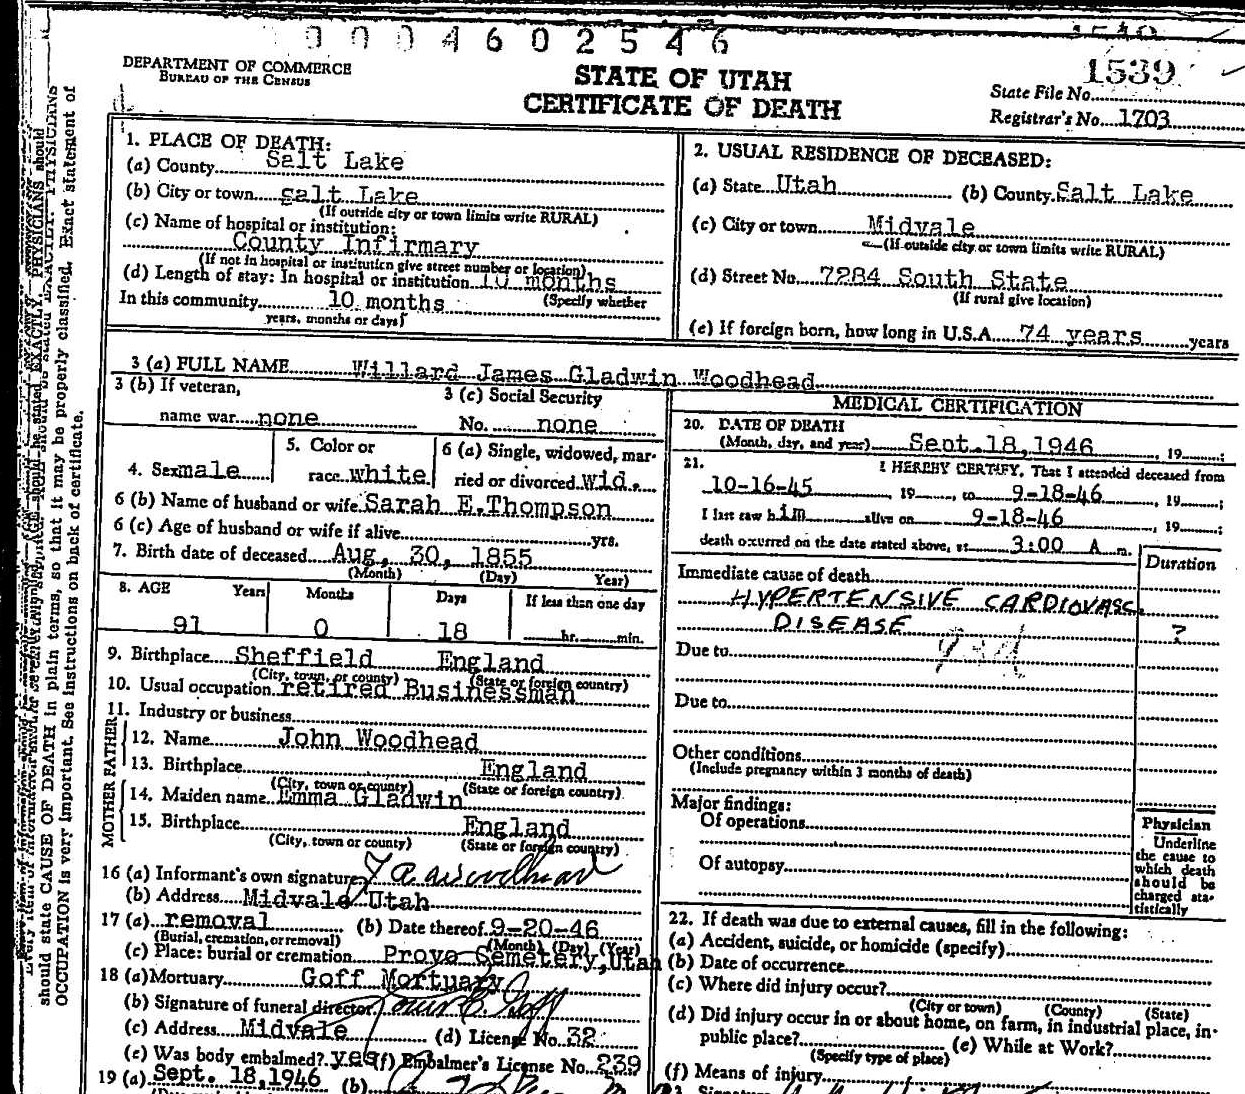 0 0 0 4 6 0 2 5 4 6
DEPARTMENT OF COMMERCE
BUREAU OF THE CENSUS
STATE OF UTAH
CERTIFICATE OF DEATH
1539
State File No.
Registrar's No. 1703
1. PLACE OF DEATH:
(a) County Salt Lake
(b) City or town salt Lake
(If outside city or town limits write RURAL)
(c) Name of hospital or institution:
County Infirmary
(If not in hospital or institution give street number or location)
(d) Length of stay: In hospital or institution 10 months
In this community 10 months (Specify whether
years, months or days)
2. USUAL RESIDENCE OF DECEASED:
(a) State Utah (b) County Salt Lake
(c) City or town Midvale
(If outside city or town limits write RURAL)
(d) Street No. 7284 South State
(If rural give location)
(e) If foreign born, how long in U.S.A. 74 years years
3 (a) FULL NAME Willard James Gladwin Woodhead
3 (b) If veteran,
name war none
3 (c) Social Security
No. none
4. Sex male
5. Color or
race white
6 (a) Single, widowed, mar-
ried or divorced wid.
6 (b) Name of husband or wife Sarah E.Thompson
6 (c) Age of husband or wife if alive yrs.
7. Birth date of deceased Aug. 30, 1855
(Month) (Day) Year)
8. AGE Years Months Days If less than one day
91 0 18 hr. min.
9. Birthplace Sheffield England
(City, town, or county) (State or foreign country)
10. Usual occupation retired Businessman
11. Industry or business
FATHER
12. Name John Woodhead
13. Birthplace England
(City, town or county) (State or foreign country)
MOTHER
14. Maiden name Emma Gladwin
15. Birthplace England
(City, town or county) (State or foreign country)
16 (a) Informant's own signature
(b) Address Midvale Utah
17 (a) removal (b) Date thereof 9-20-46
(Burial, cremation, or removal) (Month) (Day) (Year)
(c) Place: burial or cremation Provo Cemetery, Utah
18 (a) Mortuary Goff Mortuary
(b) Signature of funeral director
(c) Address Midvale (d) License No. 32
(e) Was body embalmed? yes (f) Embalmer's License No. 239
19 (a) Sept. 18,1946 (b)
MEDICAL CERTIFICATION
20. DATE OF DEATH
(Month, day, and year) Sept.18,1946, 19 ;
21. I HEREBY CERTIFY, That I attended deceased from
10-16-45, 19 , to 9-18-46, 19 ;
I last saw him alive on 9-18-46, 19 ;
death occurred on the date stated above, at 3:00 A m.
Duration
Immediate cause of death
HYPERTENSIVE CARDIOVASC.
DISEASE ?
Due to
Due to
Other conditions
(Include pregnancy within 3 months of death)
Major findings:
Of operations
Of autopsy
Physician
Underline
the cause to
which death
should be
charged sta-
tistically
22. If death was due to external causes, fill in the following:
(a) Accident, suicide, or homicide (specify)
(b) Date of occurrence
(c) Where did injury occur?
(City or town) (County) (State)
(d) Did injury occur in or about home, on farm, in industrial place, in-
public place? (e) While at Work?
(Specify type of place)
(f) Means of injury
should state CAUSE OF DEATH in plain terms, so that it may be properly classified. Exact statement of
OCCUPATION is very important. See instructions on back of certificate.